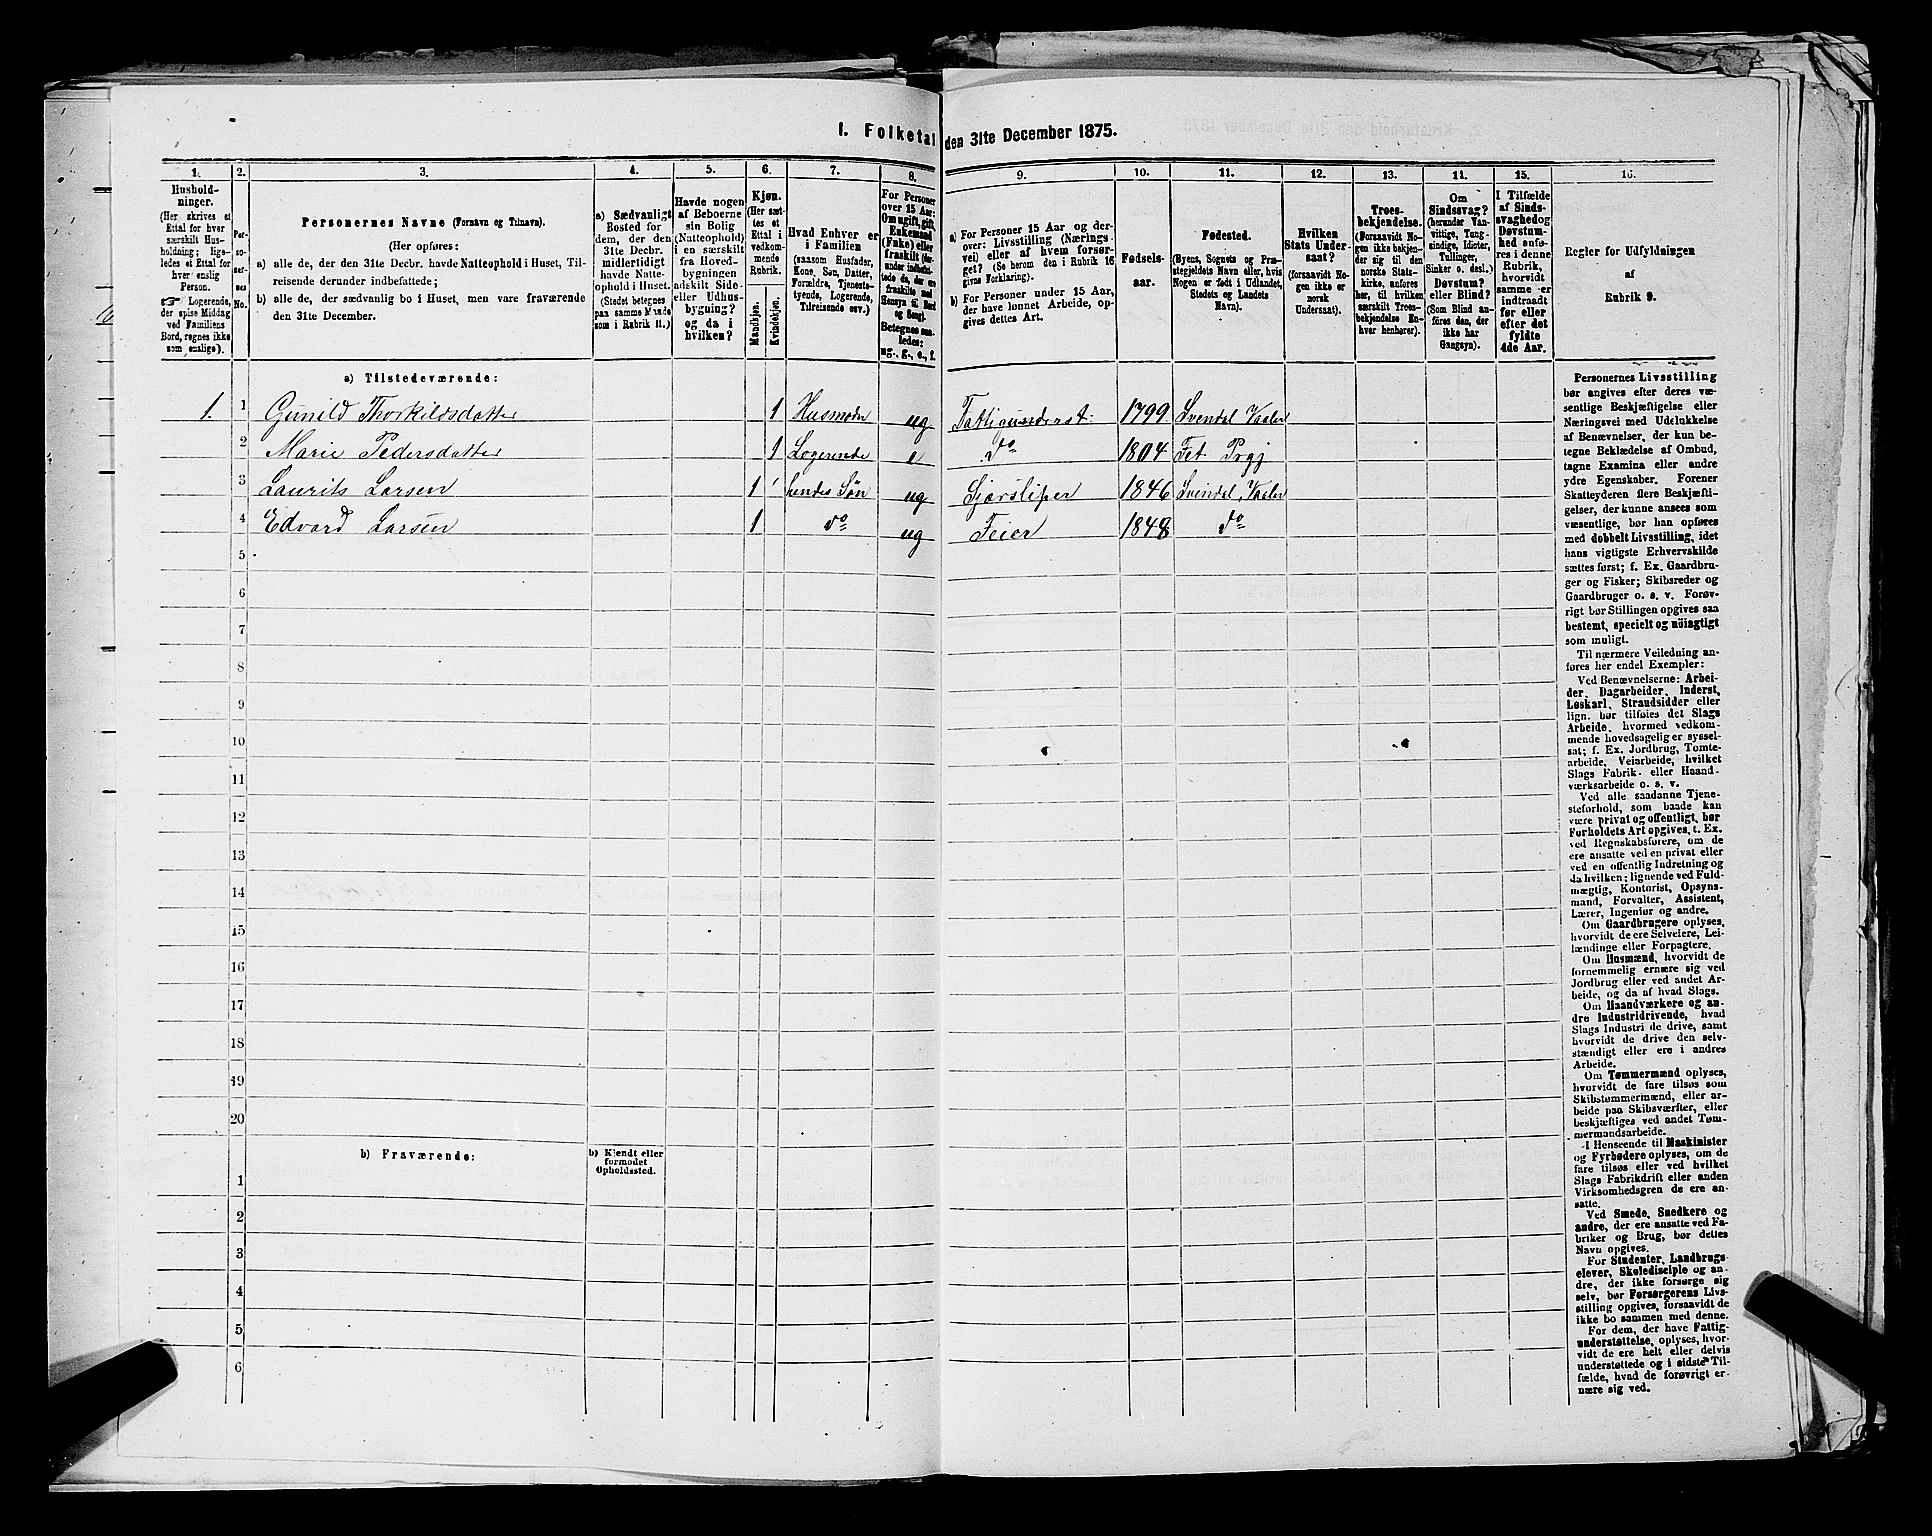 I. Folketal den 31te December 1875.
1. 2. 3. 4. 5. 6. 7. 8. 9. 10. 11. 12. 13. 14. 15. 16.
Hushold-
ninger.
(Her skrives et
Ettal for hver
særskilt Hus-
holdning; lige-
ledes et Ettal for
hver enslig
Person.
☞ Logerende,
der spise Middag
ved Familiens
Bord, regnes ikke
som enslige).
Per-
so-
ner-
nes
No.
Personernes Navne (Fornavn og Tilnavn).
(Her opføres:
a) alle de, der den 31te Decbr. havde Natteophold i Huset, Til-
reisende derunder indbefattede;
b) alle de, der sædvanlig bo i Huset, men vare fraværende
den 31te December.
a) Sædvanligt
Bosted for
dem, der den
31te Decbr.
midlertidigt
havde Natte-
ophold i Huset.
(Stedet betegnes
paa samme Maade
som i Rubrik 11.)
Havde nogen
af Beboerne
sin Bolig
(Natteophold)
i en særskilt
fra Hoved-
bygningen
adskilt Side-
eller Udhus-
bygning?
og da i
hvilken?
Kjøn.
(Her sæt-
tes et
Ettal i
vedkom-
mende
Rubrik.
Mandkjøn.
Kvindekjøn.
Hvad Enhver er
i Familien
(saasom Husfader,
Kone, Søn, Datter,
Forældre, Tjeneste-
tyende, Logerende,
Tilreisende osv.)
For Personer
over 15 Aar:
Om ugift, gift,
Enkemand
(Enke) eller
fraskilt (der-
under indbefat-
tede de, der ere
fraskilte med
Hensyn til Bord
og Seng).
Betegnes saa-
ledes:
ug., g., e., f.
a) For Personer 15 Aar og der-
over: Livsstilling (Nærings-
vei) eller af hvem forsør-
get? (Se herom den i Rubrik 16
givne Forklaring).
b) For Personer under 15 Aar,
der have lønnet Arbeide, op-
gives dettes Art.
Fødsels-
aar.
Fødested.
(Byens, Sognets og Præ-
stegjeldets Navn eller, hvis
Nogen er født i Udlandet,
Stedets og Landets
Navn).
Hvilken
Stats Under-
saat?
(forsaavidt No-
gen ikke er
norsk
Undersaat).
Troes-
bekjendelse.
(Forsaavidt No-
gen ikke bekjen-
der sig til den
norske Stats-
kirke, anføres
her, til hvilken
særskilt Troes-
bekjendelse En-
hver henhører).
Om
Sindssvag?
(herunder Van-
vittige, Tung-
sindige, Idioter,
Tullinger,
Sinker o. desl.)
Døvstum?
eller Blind?
(Som Blind an-
føres den, der
ikke har
Gangsyn).
I Tilfælde
af Sinds-
svaghed og
Døvstum-
hed anfø-
res i denne
Rubrik,
hvorvidt
samme er
indtraadt
før eller
efter det
fyldte
4de Aar.
Regler for Udfyldningen
af
Rubrik 9.
a) Tilstedeværende:
1. 1 Gunild Thorkildsdatter 1 Husmoder ug Fattigunderst. 1799 Svendal Vaaler
2 Marie Pedersdatter 1 Logerende e do 1804 Fet Prgj
3 Laurits Larsen 1 hendes Søn ug Gjørsliper 1846 Svindal, Vaaler
4 Edvard Larsen 1 do ug Feier 1848 do
5
6
7
8
9
10
11
12
13
14
15
16
17
18
19
20
b) Fraværende:
b) Kjendt eller
formodet
Opholdssted.
1
2
3
4
5
6
Personernes Livsstilling
bør angives efter deres væ-
sentlige Beskjæftigelse eller
Næringsvei med Udelukkelse
af Benævnelser, der kun be-
tegne Beklædelse af Ombud,
tagne Examina eller andre
ydre Egenskaber. Forener
Skatteyderen flere Beskjæfti-
gelser, der kunne ansees som
væsentlige, bør han opføres
med dobbelt Livsstilling, idet
hans vigtigste Erhvervskilde
sættes først; f. Ex. Gaardbru-
ger og Fisker; Skibsreder og
Gaardbruger o. s. v. Forøv-
rigt bør Stillingen opgives saa
bestemt, specielt og nöiagtigt
som muligt.
Til nærmere Veiledning an-
føres her endel Exempler:
Ved Benævnelserne: Arbei-
der, Dagarbeider, Inderst,
Løskarl, Strandsidder eller
lign. bør tilføies det Slags
Arbeide, hvormed vedkom-
mende hovedsagelig er syssel-
sat; f. Ex. Jordbrug, Tomte-
arbeide, Veiarbeide, hvilket
Slags Fabrik- eller Haand-
værksarbeide o. s. v.
Ved alle saadanne Tjene-
steforhold, som baade kan
være privat og offentligt, bør
Forholdets Art opgives, t. Ex.
ved Regnskabsførere, om de
ere ansatte ved en privat eller
ved en offentlig Indretning og
da hvilken; lignende ved Fuld-
mægtig, Kontorist, Opsyns-
mand, Forvalter, Assistent,
Lærer, Ingeniør og andre.
Om Gaardbrugere oplyses,
hvorvidt de ere Selveiere, Lei-
lændinge eller Forpagtere.
Om Husmænd, hvorvidt de
fornemmelig ernære sig ved
Jordbrug eller ved andet Ar-
beide, og da af hvad Slags.
Om Haandværkere og an-
dre Industridrivende, hvad
Slags Industri de drive, samt
hvorvidt de drive den selv-
stændigt eller ere i andres
Arbeide.
Om Tømmermænd oplyses,
hvorvidt de fare tilsøs som
Skibstømmermænd, eller ar-
beide paa Skibsværfter, eller
beskjæftiges ved andet Tøm-
mermandsarbeide.
I Henseende til Maskinister
og Fyrbødere oplyses, om de
fare tilsøs eller ved hvilket
Slags Fabrikdrift eller anden
Virksomhedsgren de ere an-
satte.
Ved Smede, Snedkere og
andre, der ere ansatte ved Fa-
briker og Brug, bør dettes
Navn opgives.
For Studenter, Landbrugs-
elever, Skoledisciple og an-
dre, der ikke forsørge sig
selv, bør Forsørgerens Livs-
stilling opgives, forsaavidt de
ikke bo sammen med denne.
For dem, der have Fattig-
understøttelse, oplyses, hvor-
vidt de ere helt eller delvis
understøttede og i sidste Til-
fælde, hvad de forøvrigt er-
nære sig ved.